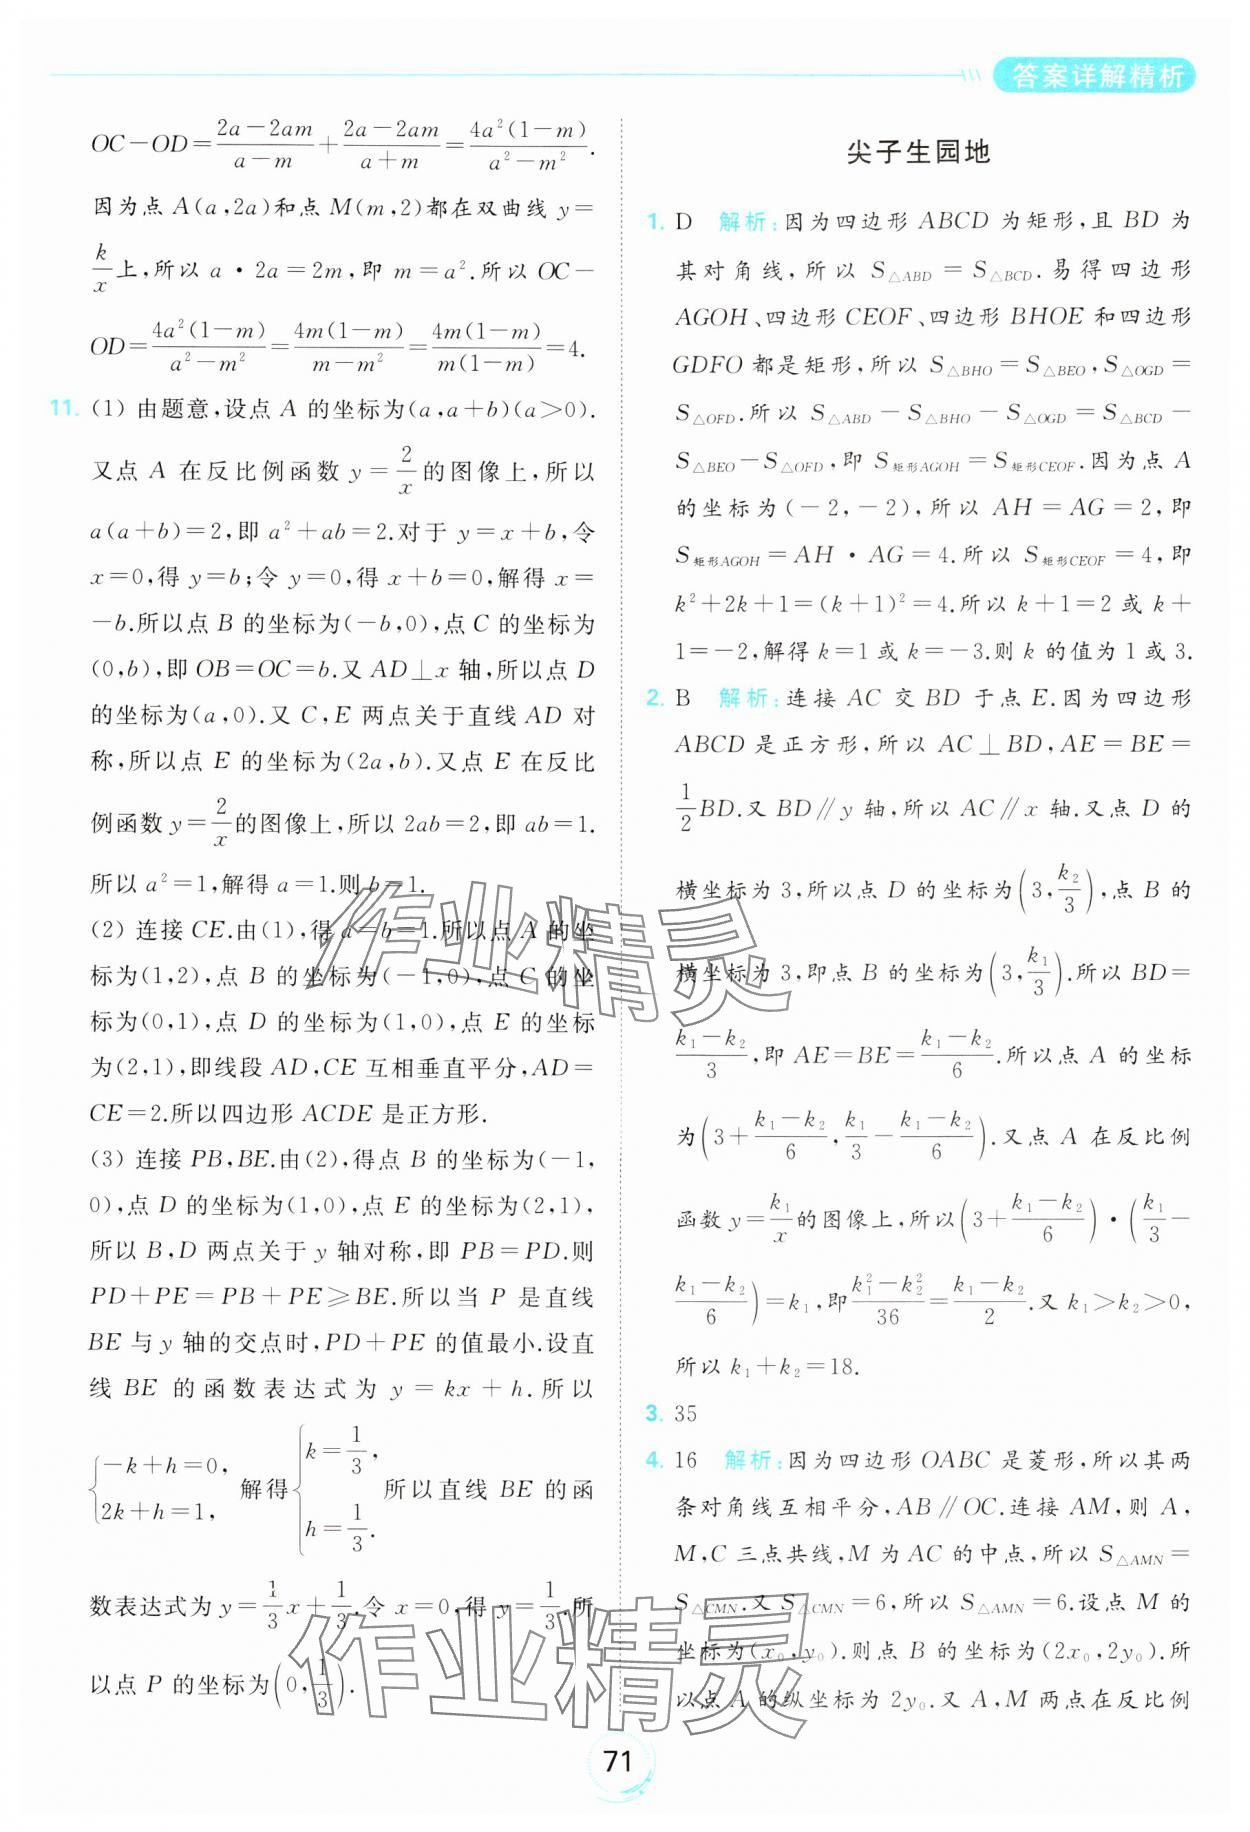 答案详解精析
OC－OD＝\frac{2a－2am}{a－m}＋\frac{2a－2am}{a＋m}＝\frac{4a²(1－m)}{a²－m²}.
因为点 A(a,2a)和点 M(m,2)都在双曲线 y＝
\frac{k}{x}上,所以 a·2a＝2m,即 m＝a².所以 OC－
OD＝\frac{4a²(1－m)}{a²－m²}＝\frac{4m(1－m)}{m－m²}＝\frac{4m(1－m)}{m(1－m)}＝4.
11. (1) 由题意,设点 A 的坐标为(a,a＋b)(a＞0).
又点 A 在反比例函数 y＝\frac{2}{x}的图像上,所以
a(a＋b)＝2,即 a²＋ab＝2.对于 y＝x＋b,令
x＝0,得 y＝b;令 y＝0,得 x＋b＝0,解得 x＝
－b.所以点 B 的坐标为(－b,0),点 C 的坐标为
(0,b),即 OB＝OC＝b.又 AD⊥x 轴,所以点 D
的坐标为(a,0).又 C,E 两点关于直线 AD 对
称,所以点 E 的坐标为(2a,b).又点 E 在反比
例函数 y＝\frac{2}{x}的图像上,所以 2ab＝2,即 ab＝1.
所以 a²＝1,解得 a＝1.则 b＝1.
(2) 连接 CE.由(1),得 a＝b＝1.所以点 A 的坐
标为(1,2),点 B 的坐标为(－1,0),点 C 的坐
标为(0,1),点 D 的坐标为(1,0),点 E 的坐标
为(2,1),即线段 AD,CE 互相垂直平分,AD＝
CE＝2.所以四边形 ACDE 是正方形.
(3) 连接 PB,BE.由(2),得点 B 的坐标为(－1,
0),点 D 的坐标为(1,0),点 E 的坐标为(2,1),
所以 B,D 两点关于 y 轴对称,即 PB＝PD.则
PD＋PE＝PB＋PE≥BE.所以当 P 是直线
BE 与 y 轴的交点时,PD＋PE 的值最小.设直
线 BE 的函数表达式为 y＝kx＋h.所以
{－k＋h＝0, 2k＋h＝1, 解得 {k＝\frac{1}{3}, h＝\frac{1}{3}. 所以直线 BE 的函
数表达式为 y＝\frac{1}{3}x＋\frac{1}{3}.令 x＝0,得 y＝\frac{1}{3}.所
以点 P 的坐标为(0,\frac{1}{3}).
尖子生园地
1. D 解析:因为四边形 ABCD 为矩形,且 BD 为
其对角线,所以 S△ABD＝S△BCD.易得四边形
AGOH、四边形 CEOF、四边形 BHOE 和四边形
GDFO 都是矩形,所以 S△BHO＝S△BEO,S△OGD＝
S△OFD.所以 S△ABD－S△BHO－S△OGD＝S△BCD－
S△BEO－S△OFD,即 S矩形AGOH＝S矩形CEOF.因为点 A
的坐标为(－2,－2),所以 AH＝AG＝2,即
S矩形AGOH＝AH·AG＝4.所以 S矩形CEOF＝4,即
k²＋2k＋1＝(k＋1)²＝4.所以 k＋1＝2 或 k＋
1＝－2,解得 k＝1 或 k＝－3.则 k 的值为 1 或 3.
2. B 解析:连接 AC 交 BD 于点 E.因为四边形
ABCD 是正方形,所以 AC⊥BD,AE＝BE＝
\frac{1}{2}BD.又 BD∥y 轴,所以 AC∥x 轴.又点 D 的
横坐标为 3,所以点 D 的坐标为(3,\frac{k₂}{3}),点 B 的
横坐标为 3,即点 B 的坐标为(3,\frac{k₁}{3}).所以 BD＝
\frac{k₁－k₂}{3},即 AE＝BE＝\frac{k₁－k₂}{6}.所以点 A 的坐标
为(3＋\frac{k₁－k₂}{6},\frac{k₁}{3}－\frac{k₁－k₂}{6}).又点 A 在反比例
函数 y＝\frac{k₁}{x}的图像上,所以(3＋\frac{k₁－k₂}{6})·(\frac{k₁}{3}－
\frac{k₁－k₂}{6})＝k₁,即\frac{k₁²－k₂²}{36}＝\frac{k₁－k₂}{2}.又 k₁＞k₂＞0,
所以 k₁＋k₂＝18.
3. 35
4. 16 解析:因为四边形 OABC 是菱形,所以其两
条对角线互相平分,AB∥OC.连接 AM,则 A,
M,C 三点共线,M 为 AC 的中点,所以 S△AMN＝
S△CMN.又 S△CMN＝6,所以 S△AMN＝6.设点 M 的
坐标为(x₀,y₀).则点 B 的坐标为(2x₀,2y₀).所
以点 A 的纵坐标为 2y₀.又 A,M 两点在反比例
作业精灵
作业精灵
71